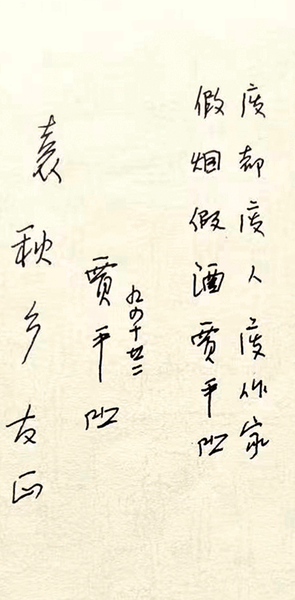 废都废人废作家
假烟假酒贾平凹
九四十廿二
贾平凹
袁秋乡友正